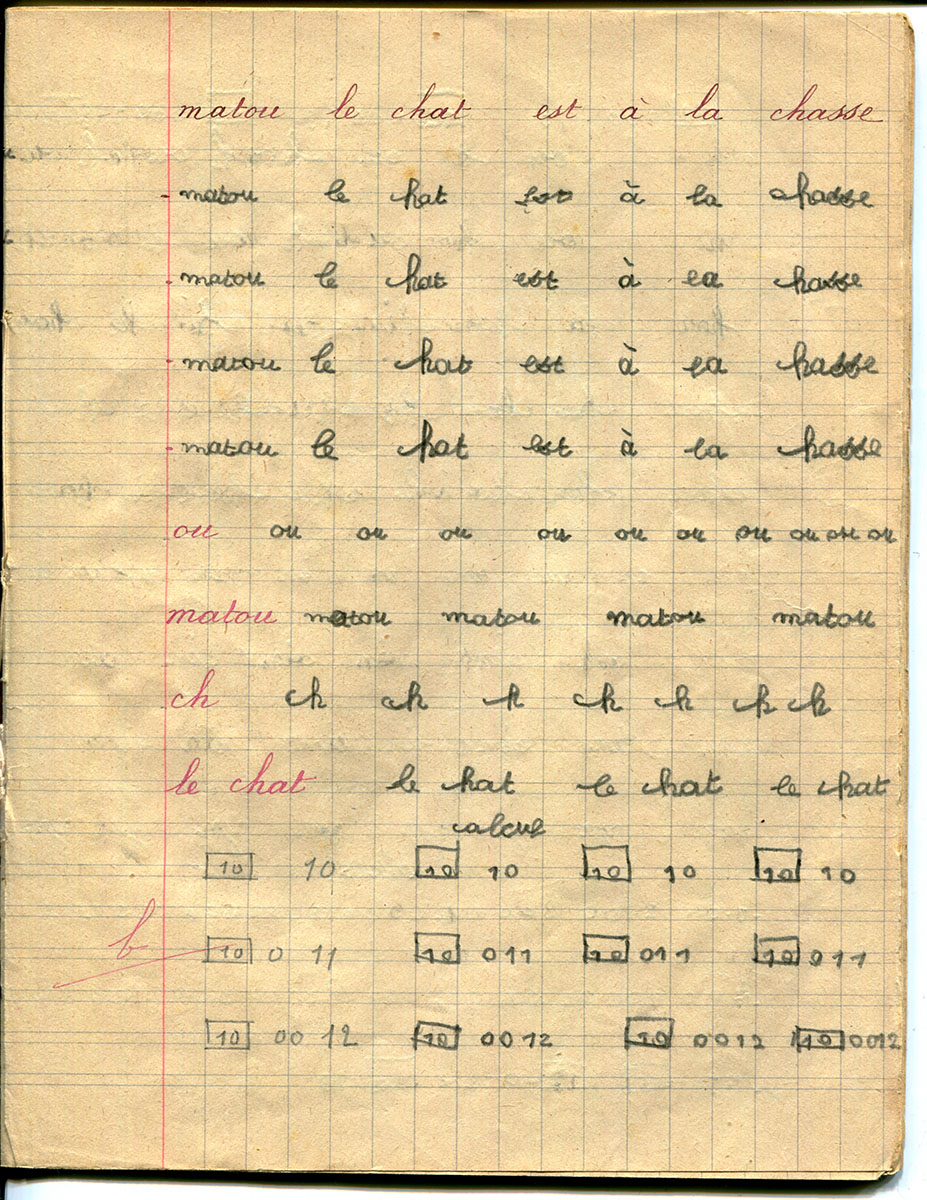 matou le chat est à la chasse
- matou le chat est à la chasse
- matou le chat est à la chasse
- matou le chat est à la chasse
- matou le chat est à la chasse
ou ou ou ou ou ou ou ou ou ou ou
matou matou matou matou matou
ch ch ch ch ch ch ch ch
le chat le chat le chat le chat
calcul
10 10 10 10 10 10 10 10
b 10 0 11 10 0 11 10 0 11 10 0 11
10 00 12 10 00 12 10 00 12 10 00 12